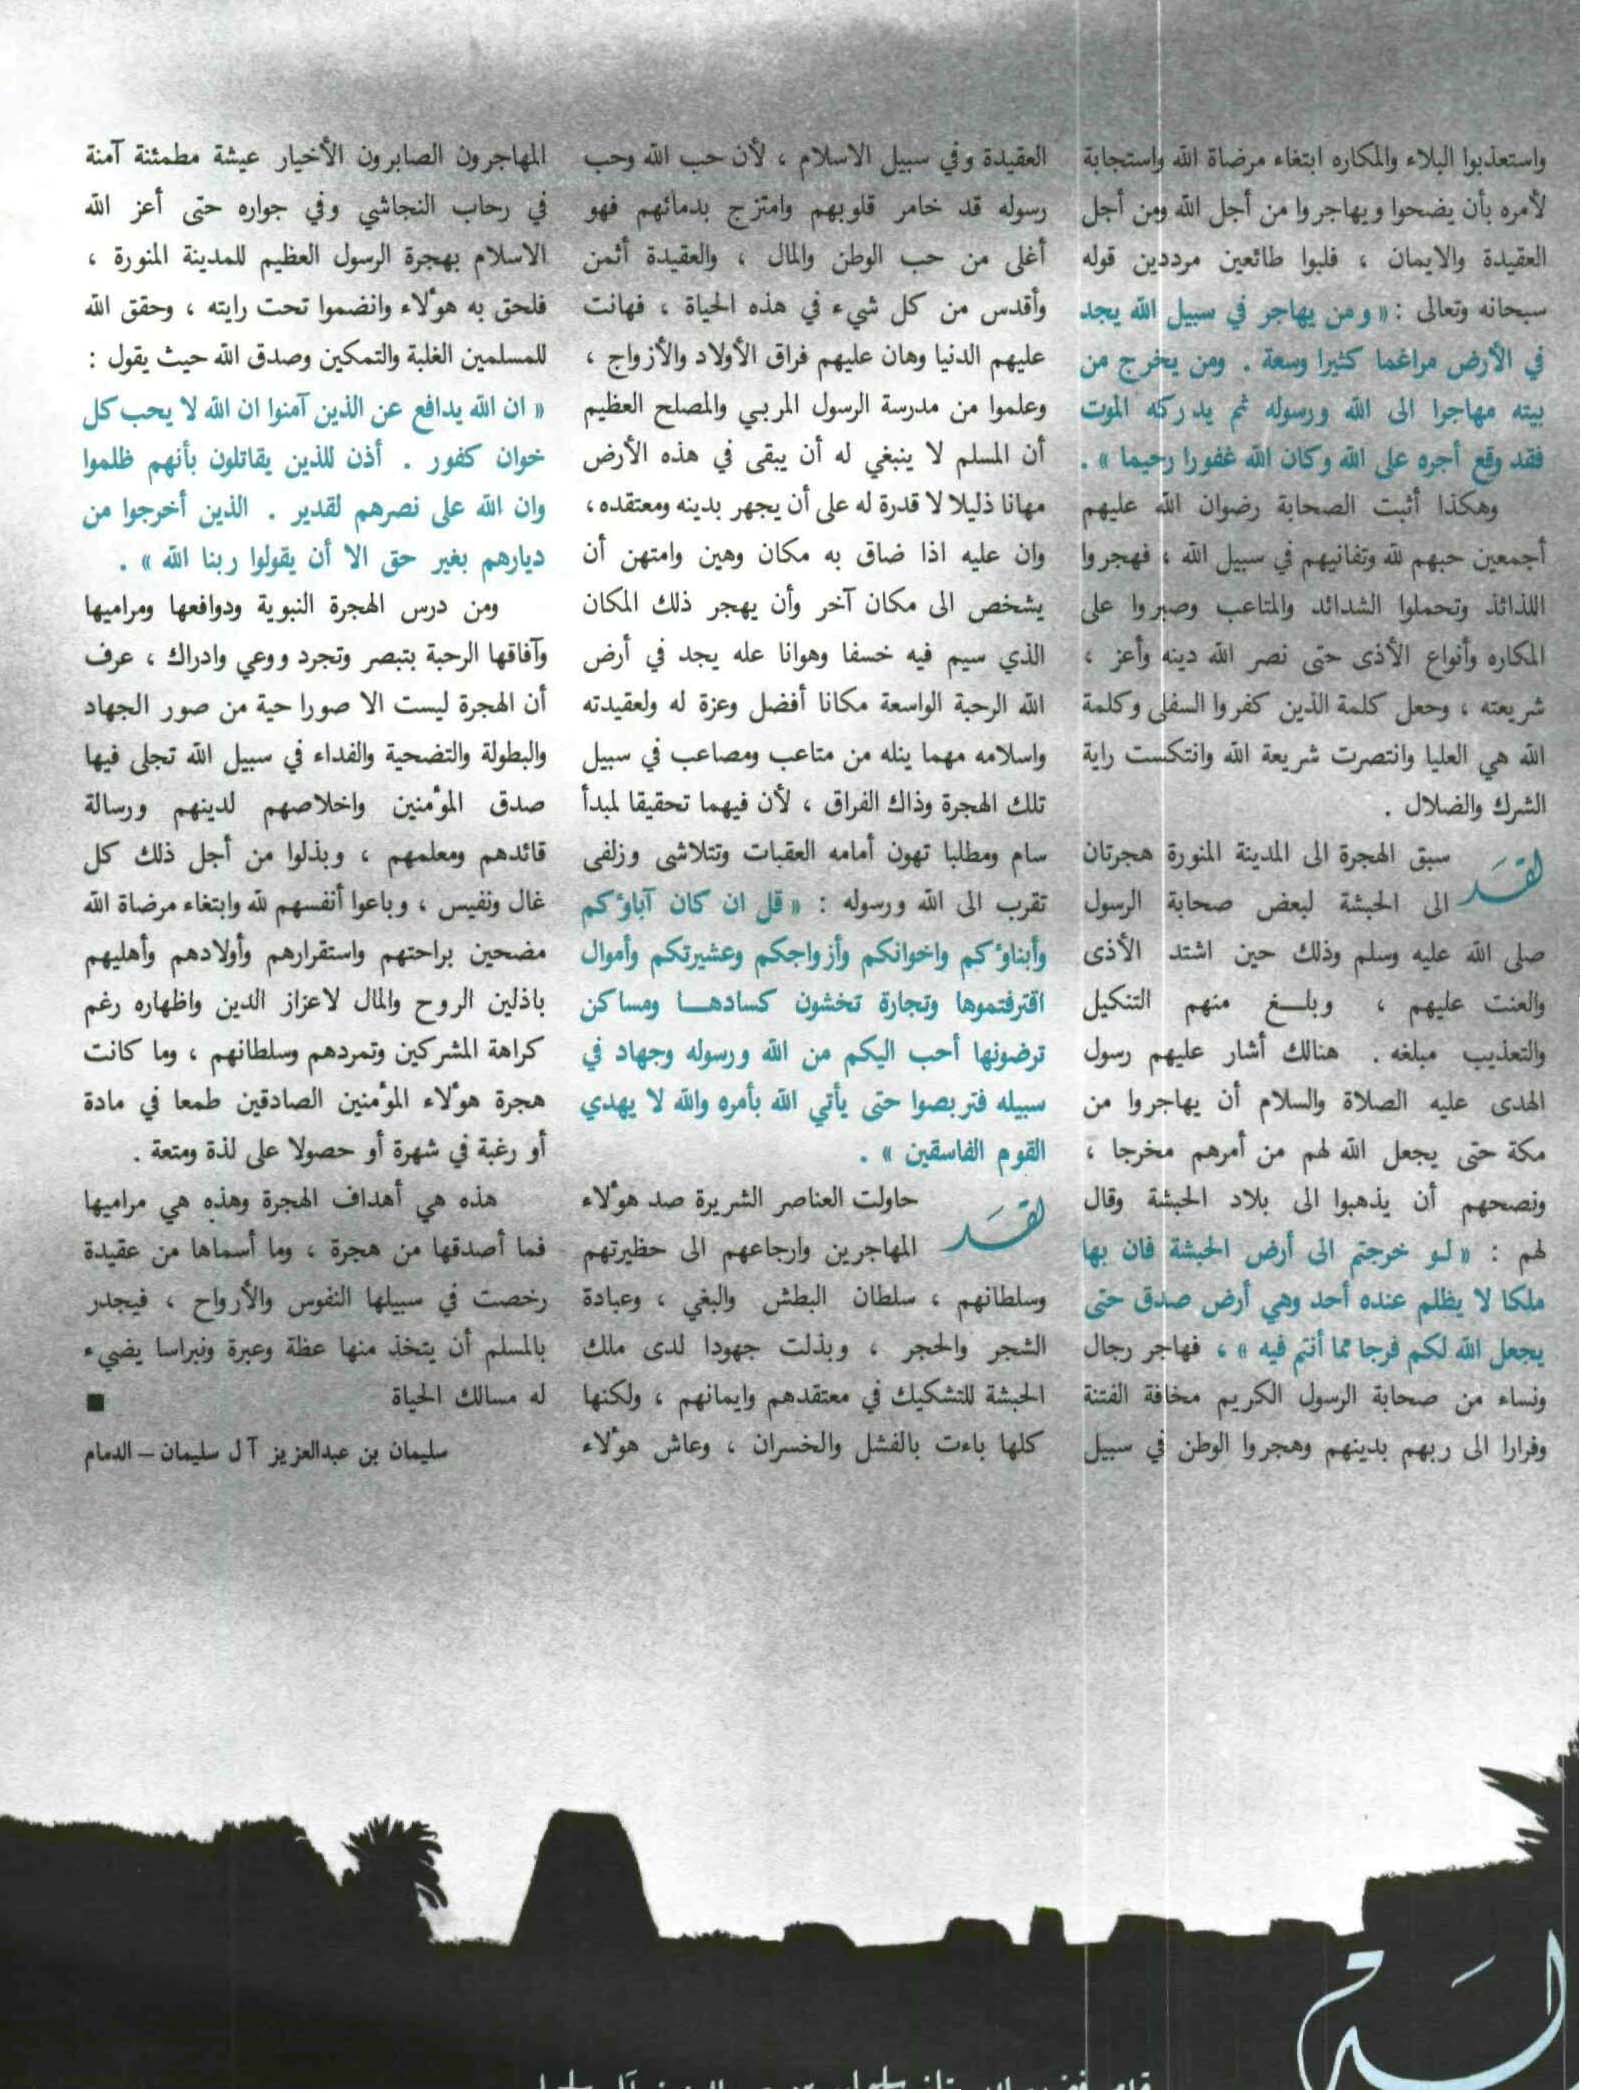 واستعذبوا البلاء والمكاره ابتغاء مرضاة الله واستجابة
لأمره بأن يضحوا ويهاجروا من أجل الله ومن أجل
العقيدة والايمان ، فلبوا طائعين مرددين قوله
سبحانه وتعالى : « ومن يهاجر في سبيل الله يجد
في الأرض مراغما كثيرا وسعة . ومن يخرج من
بيته مهاجرا الى الله ورسوله ثم يدركه الموت
فقد وقع أجره على الله وكان الله غفورا رحيما » .
وهكذا أثبت الصحابة رضوان الله عليهم
أجمعين حبهم لله وتفانيهم في سبيل الله ، فهجروا
اللذائذ وتحملوا الشدائد والمتاعب وصبروا على
المكاره وأنواع الأذى حتى نصر الله دينه وأعز ،
شريعته ، وجعل كلمة الذين كفروا السفلى وكلمة
الله هي العليا وانتصرت شريعة الله وانتكست راية
الشرك والضلال .
لقد سبق الهجرة الى المدينة المنورة هجرتان
الى الحبشة لبعض صحابة الرسول
صلى الله عليه وسلم وذلك حين اشتد الأذى
والعنت عليهم ، وبلــغ منهم التنكيل
والتعذيب مبلغه . هنالك أشار عليهم رسول
الهدى عليه الصلاة والسلام أن يهاجروا من
مكة حتى يجعل الله لهم من أمرهم مخرجا ،
ونصحهم أن يذهبوا الى بلاد الحبشة وقال
لهم : « لـو خرجتم الى أرض الحبشة فان بها
ملكا لا يظلم عنده أحد وهي أرض صدق حتى
يجعل الله لكم فرجا مما أنتم فيه » ، فهاجر رجال
ونساء من صحابة الرسول الكريم مخافة الفتنة
وفرارا الى ربهم بدينهم وهجروا الوطن في سبيل
العقيدة وفي سبيل الاسلام ، لأن حب الله وحب
رسوله قد خامر قلوبهم وامتزج بدمائهم فهو
أغلى من حب الوطن والمال ، والعقيدة أثمن
وأقدس من كل شيء في هذه الحياة ، فهانت
عليهم الدنيا وهان عليهم فراق الأولاد والأزواج ،
وعلموا من مدرسة الرسول المربي والمصلح العظيم
أن المسلم لا ينبغي له أن يبقى في هذه الأرض
مهانا ذليلا لا قدرة له على أن يجهر بدينه ومعتقده ،
وان عليه اذا ضاق به مكان وهين وامتهن أن
يشخص الى مكان آخر وأن يهجر ذلك المكان
الذي سيم فيه خسفا وهوانا عله يجد في أرض
الله الرحبة الواسعة مكانا أفضل وعزة له ولعقيدته
واسلامه مهما ينله من متاعب ومصاعب في سبيل
تلك الهجرة وذاك الفراق ، لأن فيهما تحقيقا لمبدأ
سام ومطلبا تهون أمامه العقبات وتتلاشى وزلفى
تقرب الى الله ورسوله : « قل ان كان آباؤكم
وأبناؤكم واخوانكم وأزواجكم وعشيرتكم وأموال
اقترفتموها وتجارة تخشون كسادهــا ومساكن
ترضونها أحب اليكم من الله ورسوله وجهاد في
سبيله فتربصوا حتى يأتي الله بأمره والله لا يهدي
القوم الفاسقين » .
لقد حاولت العناصر الشريرة صد هؤلاء
المهاجرين وارجاعهم الى حظيرتهم
وسلطانهم ، سلطان البطش والبغي ، وعبادة
الشجر والحجر ، وبذلت جهودا لدى ملك
الحبشة للتشكيك في معتقدهم وايمانهم ، ولكنها
كلها باءت بالفشل والخسران ، وعاش هؤلاء
المهاجرون الصابرون الأخيار عيشة مطمئنة آمنة
في رحاب النجاشي وفي جواره حتى أعز الله
الاسلام بهجرة الرسول العظيم للمدينة المنورة ،
فلحق به هؤلاء وانضموا تحت رايته ، وحقق الله
للمسلمين الغلبة والتمكين وصدق الله حيث يقول :
« ان الله يدافع عن الذين آمنوا ان الله لا يحب كل
خوان كفور . أذن للذين يقاتلون بأنهم ظلموا
وان الله على نصرهم لقدير . الذين أخرجوا من
ديارهم بغير حق الا أن يقولوا ربنا الله » .
ومن درس الهجرة النبوية ودوافعها ومراميها
وآفاقها الرحبة بتبصر وتجرد ووعي وادراك ، عرف
أن الهجرة ليست الا صورا حية من صور الجهاد
والبطولة والتضحية والفداء في سبيل الله تجلى فيها
صدق المؤمنين واخلاصهم لدينهم ورسالة
قائدهم ومعلمهم ، وبذلوا من أجل ذلك كل
غال ونفيس ، وباعوا أنفسهم لله وابتغاء مرضاة الله
مضحين براحتهم واستقرارهم وأولادهم وأهليهم
باذلين الروح والمال لاعزاز الدين واظهاره رغم
كراهة المشركين وتمردهم وسلطانهم ، وما كانت
هجرة هؤلاء المؤمنين الصادقين طمعا في مادة
أو رغبة في شهرة أو حصولا على لذة ومتعة .
هذه هي أهداف الهجرة وهذه هي مراميها
فما أصدقها من هجرة ، وما أسماها من عقيدة
رخصت في سبيلها النفوس والأرواح ، فيجدر
بالمسلم أن يتخذ منها عظة وعبرة ونبراسا يضيء
له مسالك الحياة ■
سليمان بن عبدالعزيز آل سليمان – الدمام